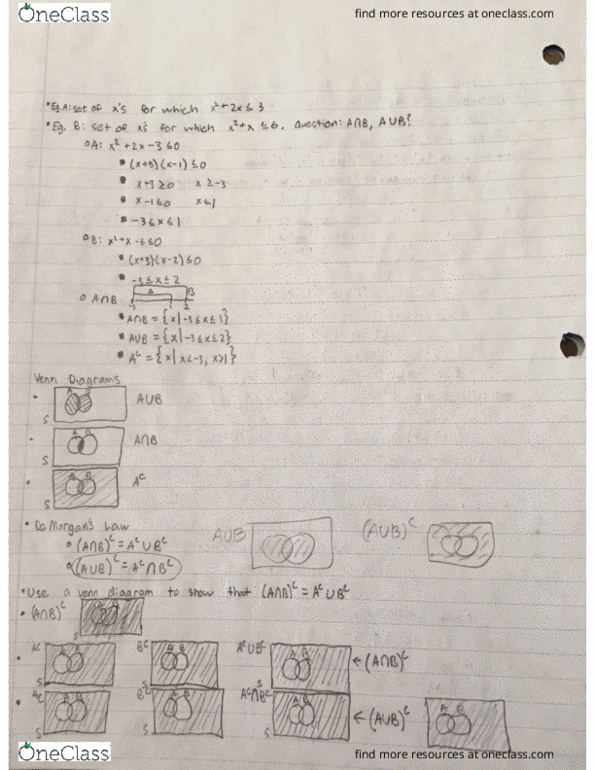 OneClass
find more resources at oneclass.com
• Eg. A: set of x's for which x²+2x≤3
• Eg. B: set of x's for which x²+x ≤6. Question: A∩B, A∪B?
○ A: x²+2x-3≤0
▪ (x+3)(x-1)≤0
▪ x+3≥0 x≥-3
▪ x-1≤0 x≤1
▪ -3≤x≤1
○ B: x²+x-6≤0
▪ (x+3)(x-2)≤0
▪ -3≤x≤2
○ A∩B A B
-3 1 2
▪ A∩B = {x|-3≤x≤1}
▪ A∪B = {x|-3≤x≤2}
▪ Aᶜ = {x| x<-3, x>1}
Venn Diagrams
A B
S
A∪B
A B
S
A∩B
A B
S
Aᶜ
• DeMorgan's Law
○ (A∩B)ᶜ = Aᶜ∪Bᶜ
○ (A∪B)ᶜ = Aᶜ∩Bᶜ
A∪B (A∪B)ᶜ
• Use a venn diagram to show that (A∩B)ᶜ = Aᶜ∪Bᶜ
• (A∩B)ᶜ
S
Aᶜ A B Bᶜ A B Aᶜ∪Bᶜ A B ←(A∩B)ᶜ
S S S
Aᶜ A B Bᶜ A B Aᶜ∩Bᶜ A B ←(A∪B)ᶜ A B
S S S
OneClass
find more resources at oneclass.com